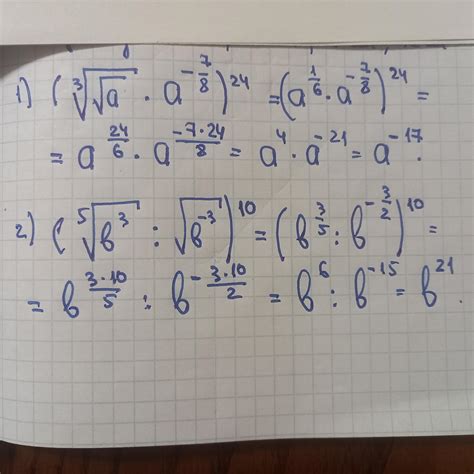 1) (∛√a · a^(-7/8))^24 = (a^(1/6) · a^(-7/8))^24 =
= a^(24/6) · a^(-7·24/8) = a^4 · a^-21 = a^-17.
2) (⁵√b^3 : √b^-3)^10 = (b^(3/5) : b^(-3/2))^10 =
= b^(3·10/5) : b^(-3·10/2) = b^6 : b^-15 = b^21.